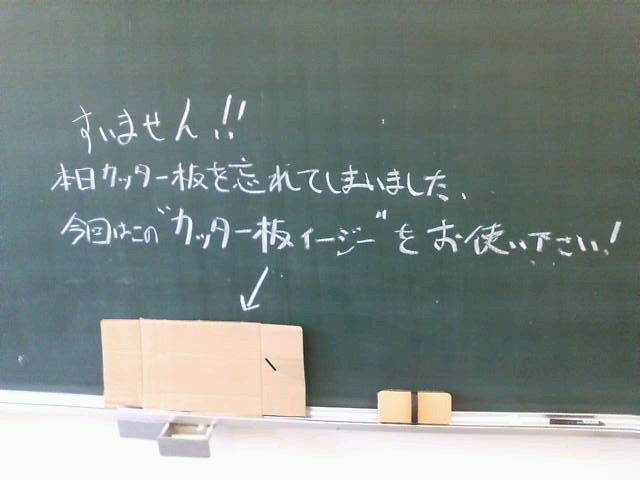 すいません!!
本日カッター板を忘れてしまいました、
今回はこの"カッター板イージー"をお使い下さい!